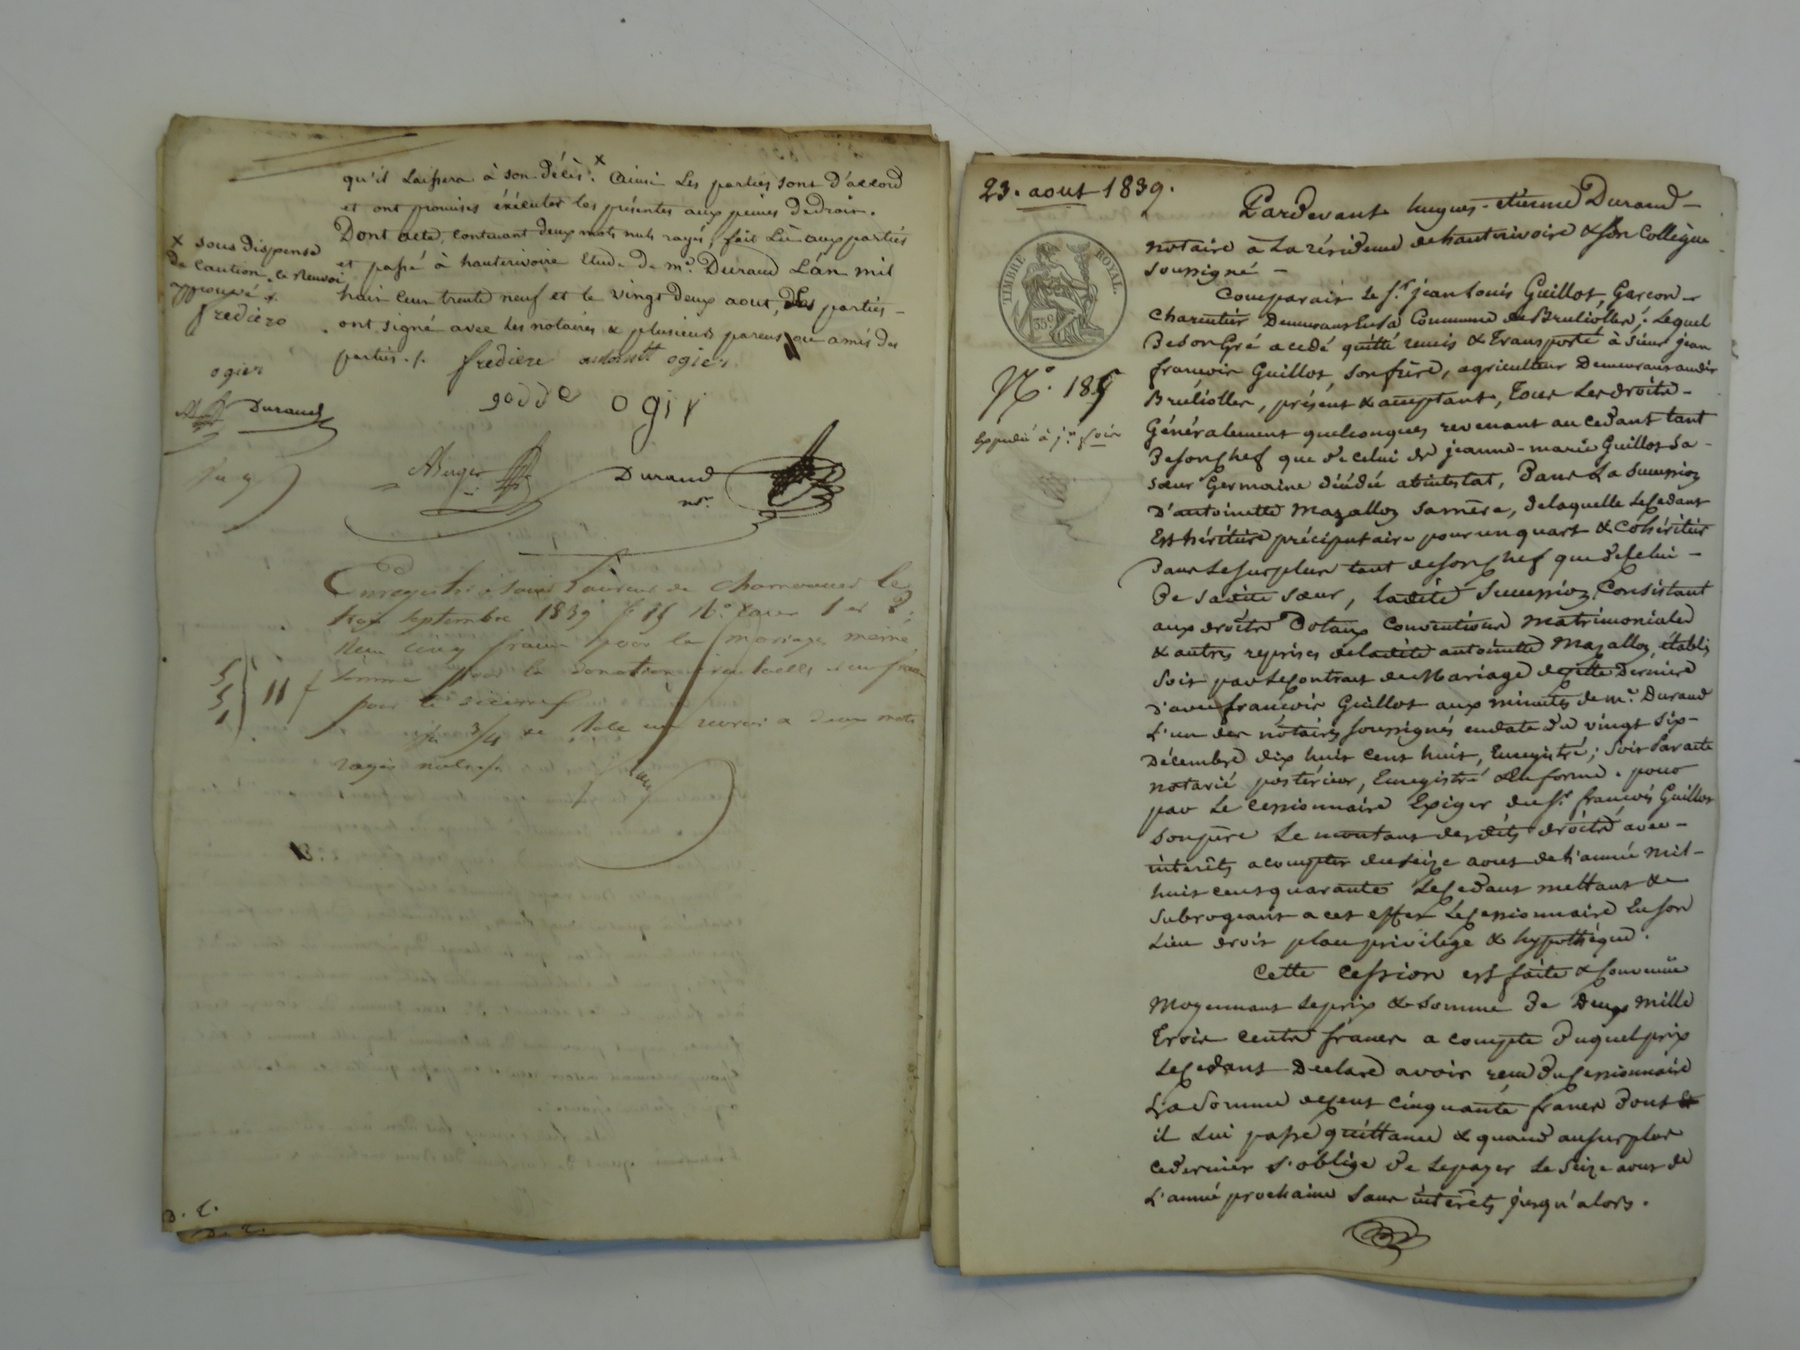 qu'il laissera à son décès. x Ainsi les parties sont d'accord
et ont promises éxécuter les présentes aux peines de droit.
Dont acte, contenant deux mots nuls rayés, fait Lû aux parties
et passé à hauterivoire Etude de me. Durand L'an mil
huit cent trente neuf et le vingt deux aout, Les parties -
ont signé avec les notaires & plusieurs parens ou amis des
parties ./.
x sous dispense
de caution. ce renvoi
approuvé ./.
fredière
ogier
Durand
fredière ogier
godde ogir
Durand
nre.
Enregistré à Saint Laurent de chamousset le
septembre 1839 fo 25 No. Cases 1 et 2.
Reçu cinq francs pour le mariage même
somme pour la donation éventuelle et un franc
pour le
5
5 } 11 f
1
renvoi & deux mots
rayés nuls
D. C.
D. C.
23. aout 1839.
TIMBRE ROYAL.
35c
No. 185
Expédié à
Pardevant hugues-etienne Durand -
notaire à la résidence de hauterivoire & son Collègue
soussigné -
Comparait le sr. jean Louis Guillot, Garcon -
Charpentier Demeurant en la Commune de Brullioles. Lequel
De son Gré a cedé quitté remis & transporté à sieur jean
francois Guillot, son frère, agriculteur Demeurant audit
Brulioller, présent & acceptant, Tous les droits -
Généralement quelconques revenant au cedant tant
De son chef que de celui de jeanne-marie Guillot sa -
sœur Germaine décédée abintestat, Dans La succession
D'antoinette Mazallon sa mère, de laquelle le cedant
Est héritier précipuitaire pour un quart & cohéritier
Dans le surplus tant de son chef que de celui -
De sadite sœur, ladite Succession Consistant
aux droits Dotaux Conventions Matrimoniales
& autres reprises de ladite antoinette Mazallon, établis
soit par le contrat de Mariage de cette Derniere
d'avec francois Guillot aux minutes de me. Durand
L'un des notaires soussignés en date du vingt six -
Décembre dix huit cent huit, Enregistré; soit par acte
notarié postérieur, Enregistré & en forme. pour
par Le cessionnaire Exiger du sr. francois Guillot
son père Le montant desdits droits avec -
intérêts a compter du seize aout de l'année mil -
huit cent quarante Le cedant mettant &
subrogeant a cet effet Le cessionnaire En son
Lieu droit place privilège & hypothèque.
Cette cession est faite & convenue
Moyennant le prix & somme de Deux mille
Trois cents francs a compte duquel prix
Le cedant Déclare avoir recu du cessionnaire
La Somme de cent cinquante francs Dont
il Lui passe quittance & quand au surplus
ce dernier s'oblige de le payer le seize aout de
L'année prochaine sans intérêts jusqu'alors.